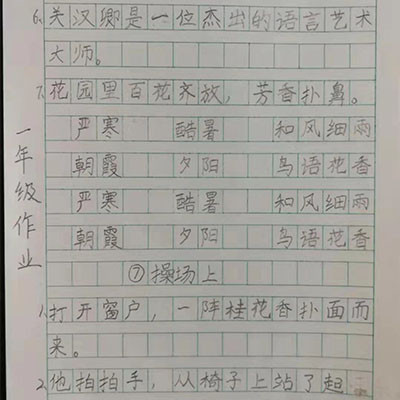 6.关汉卿是一位杰出的语言艺术
大师。
7.花园里百花齐放，芳香扑鼻。
严寒 酷暑 和风细雨
朝霞 夕阳 鸟语花香
严寒 酷暑 和风细雨
朝霞 夕阳 鸟语花香
⑦操场上
1.打开窗户，一阵桂花香扑面而
来。
2.他拍拍手，从椅子上站了起
一年级作业